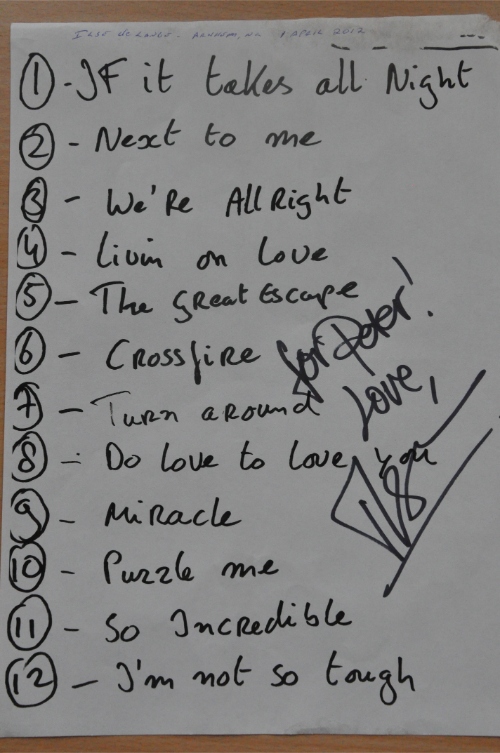 ILSE DELANGE. ARNHEM, NL 1 APRIL 2012
1 - IF it takes all Night
2 - Next to me
3 - We're AllRight
4 - Livin on Love
5 - The Great Escape
6 - Crossfire
for Peter!
Love,
7 - Turn around
8 - Do love to love you
9 - Miracle
10 - Puzzle me
11 - So Incredible
12 - I'm not so tough